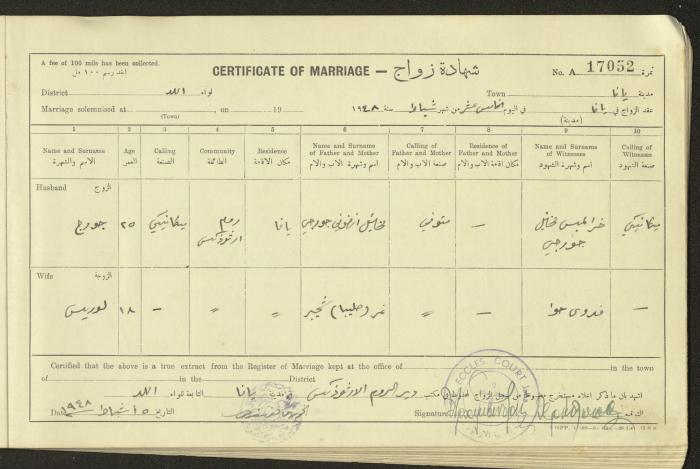 A fee of 100 mils has been collected.
اخذ رسم ١٠٠ مل
CERTIFICATE OF MARRIAGE — شهادة زواج
No. A 17052 نمرة
District لواء اللد
Town مدينة يافا
Marriage solemnised at , on 19
(Town)
عقد الزواج في يافا في اليوم الخامس عشر من شهر شباط سنة ١٩٤٨
(مدينة)
1 2 3 4 5 6 7 8 9 10
Name and Surname Age Calling Community Residence Name and Surname of Father and Mother Calling of Father and Mother Residence of Father and Mother Name and Surname of Witnesses Calling of Witnesses
الاسم والشهرة العمر الصنعة الطائفة مكان الاقامة اسم وشهرة الاب والام صنعة الاب والام مكان اقامة الاب والام اسم وشهرة الشهود صنعة الشهود
Husband الزوج
جورج ٢٥ ميكانيكي روم ارثوذكس يافا جورجي متوفي — ميكانيكي
جورجي
Wife الزوجة
لوريس ١٨ — 〃 〃 〃 — فدوى حوا —
Certified that the above is a true extract from the Register of Marriage kept at the office of in the town
of in the District
اشهد بان ما ذكر اعلاه مستخرج من سجل الزواج المحفوظ في مكتب دير الروم الارثوذكس مدينة يافا التابعة للواء اللد
Date التاريخ ١٥ شباط ١٩٤٨
Signature التوقيع
ECCLES. COURT